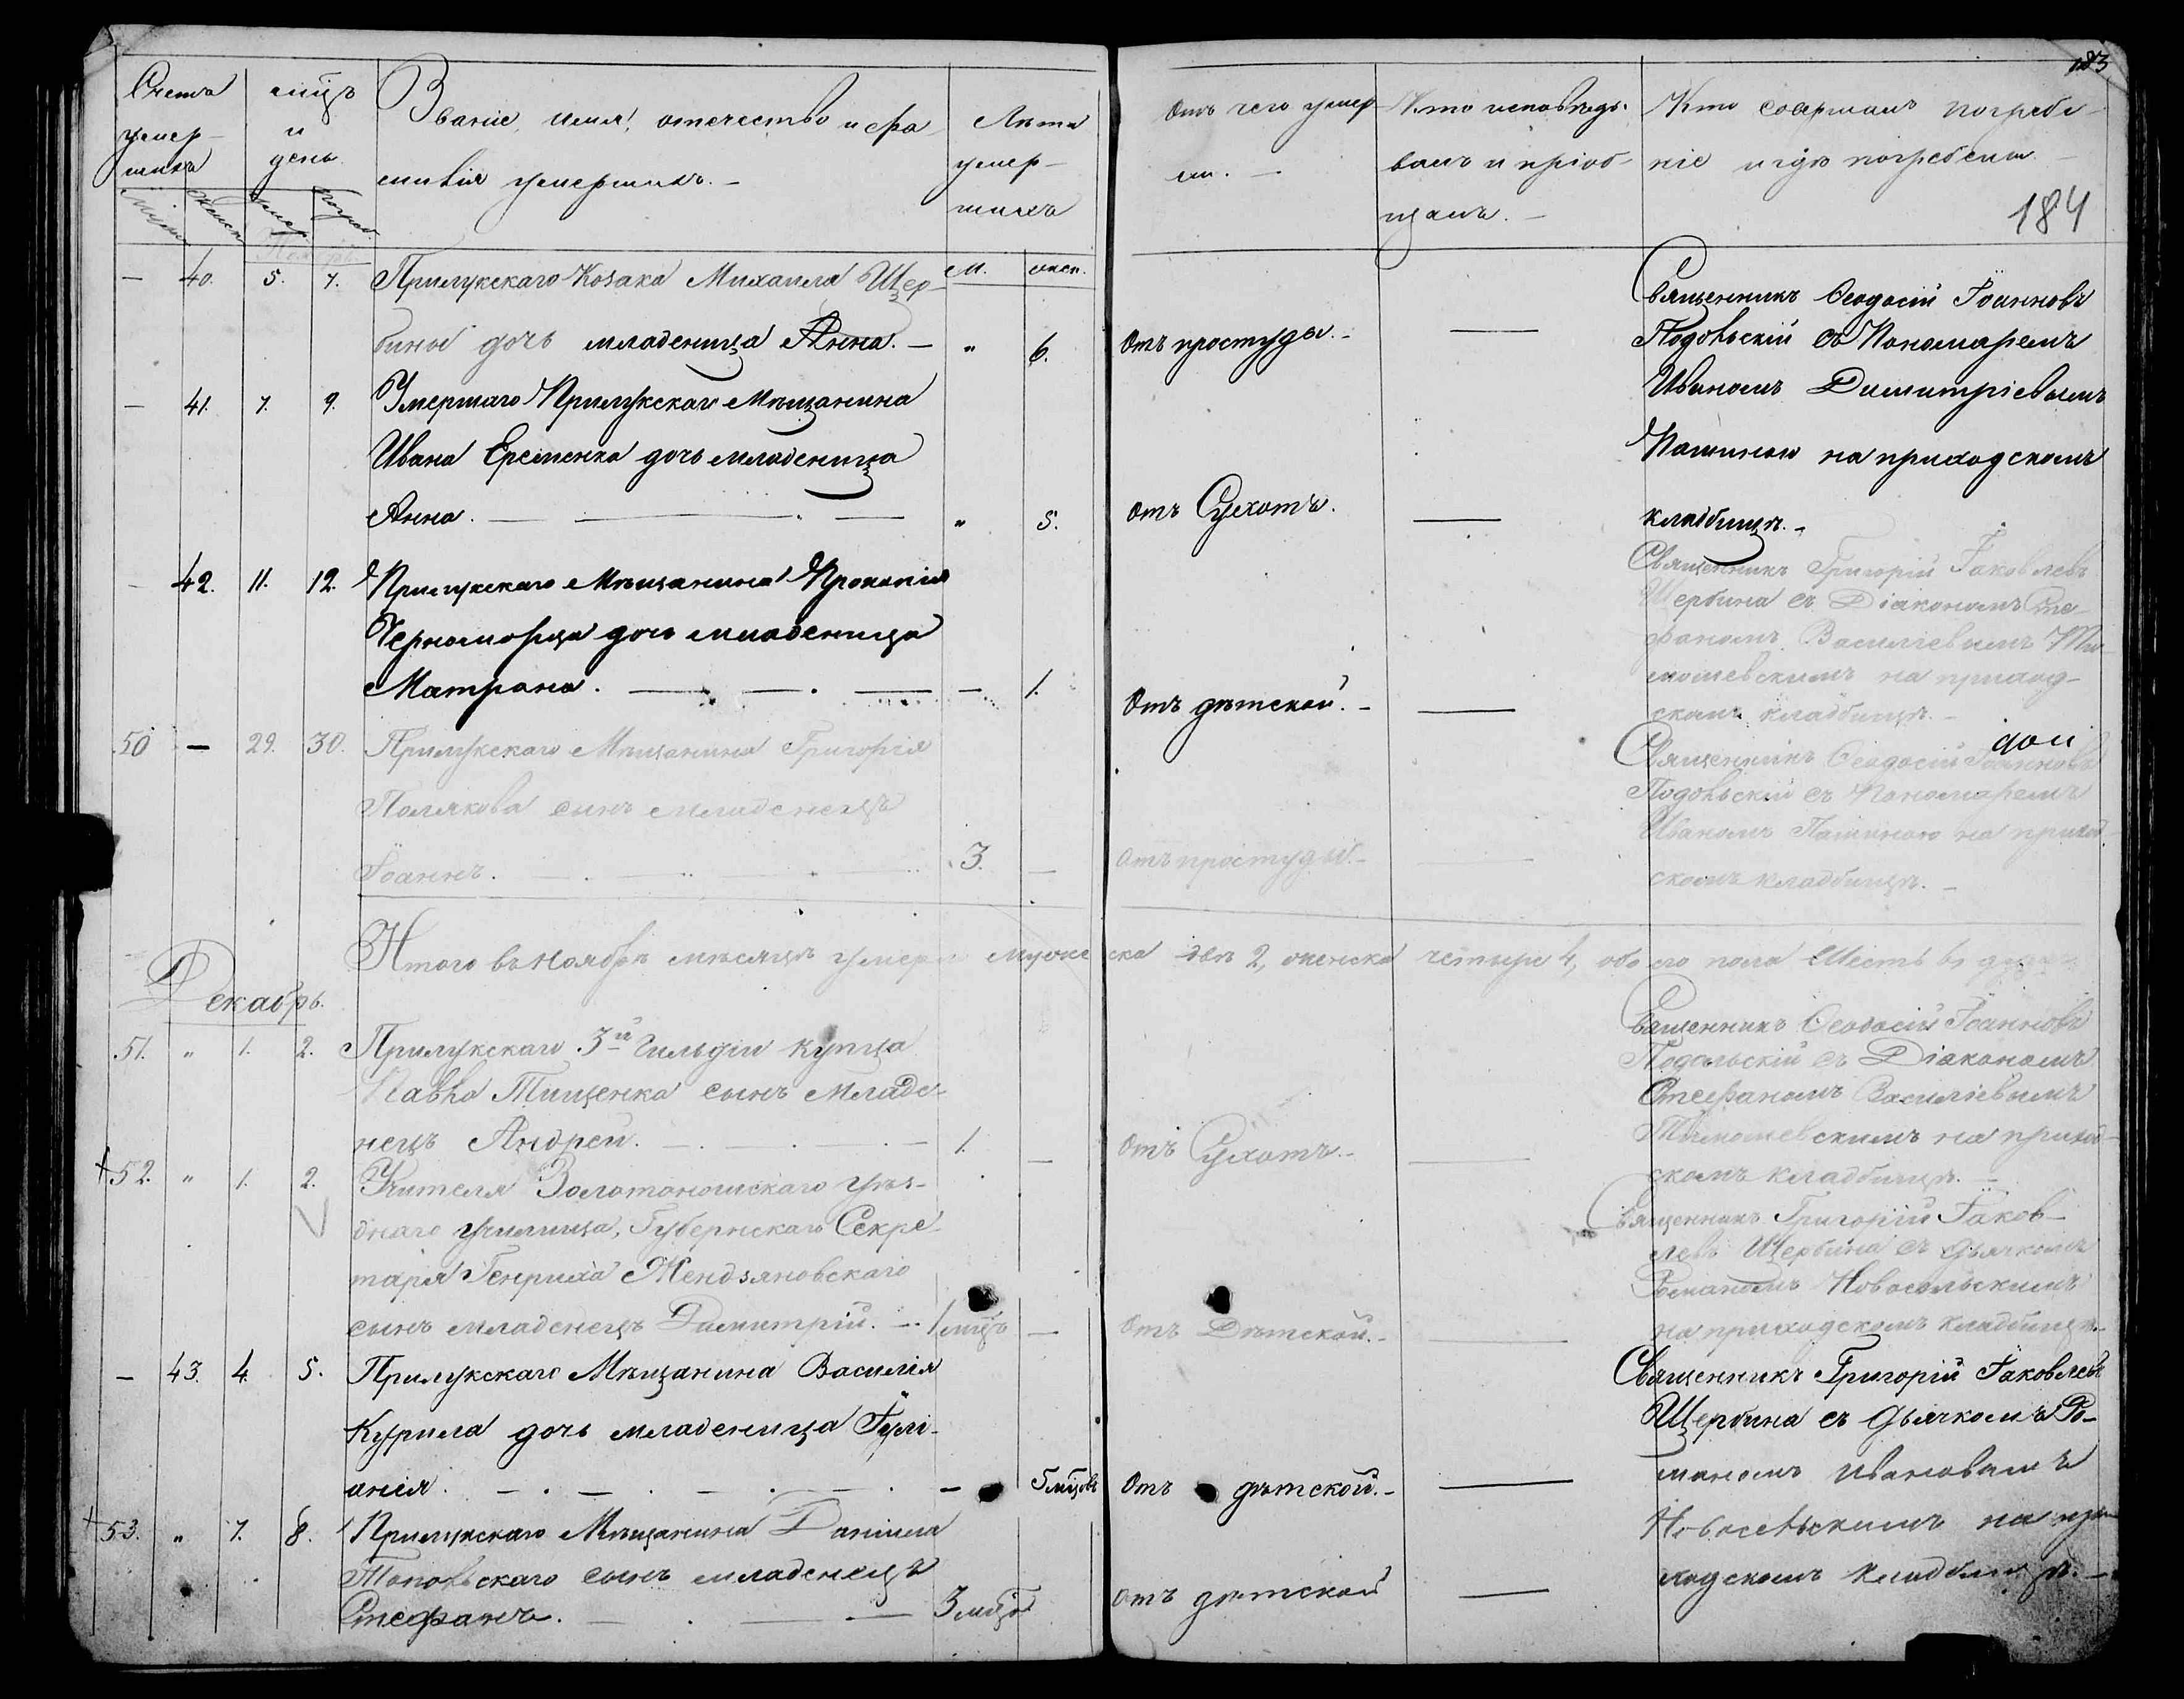 183
184
Счетъ умер-шихъ
мцъ и день
Званіе, имя, отечество и фа-
милія умершихъ. —
Лѣта умер-шихъ
Отъ чего умер-ли. —
Кто исповѣды-валъ и пріоб-щалъ. —
Кто совершалъ погребе-
ніе и гдѣ погребены. —
Мущ. Женск. умер. погреб.
М. женск.
— 40. 5. 7. Прилукскаго Козака Михаила Щер-
бины дочь младеница Анна. — " 6. Отъ простуды. — —
Священникъ Ѳеодосій Іоанновъ
Подольскій съ Пономаремъ
Иваномъ Димитріевымъ
Пашиною на приходскомъ
кладбищѣ. —
— 41. 7. 9. Умершаго Прилукскаго Мѣщанина
Ивана Еременка дочь младеница
Анна. — " 5. Отъ Сухотъ. —
— 42. 11. 12. Прилукскаго Мѣщанина Прокопія
Черноморца дочь младеница
Матрона. — — 1. Отъ дѣтской. — —
Священникъ Григорій Іаковлевъ
Щербина съ Діакономъ Сте-
фаномъ Василіевымъ Ти-
мошевскимъ на приход-
скомъ кладбищѣ. —
50 — 29. 30. Прилукскаго Мѣщанина Григорія
Полякова сынъ младенецъ
Іоаннъ. — 3. — Отъ простуды. — —
Священникъ Ѳеодосій Іоанновъ
Подольскій съ Пономаремъ
Иваномъ Пашиною на приход-
скомъ кладбищѣ. —
Итого въ Ноябрѣ мѣсяцѣ умерло мужеска два 2, женска четыре 4, обоего пола шесть 6,
Декабрь.
51. " 1. 2. Прилукскаго 3й Гильдіи купца
Павла Тищенка сынъ младе-
нецъ Андрей. — 1. — Отъ Сухотъ. — —
Священникъ Ѳеодосій Іоанновъ
Подольскій съ Діакономъ
Стефаномъ Василіевымъ
Тимошевскимъ на приход-
скомъ кладбищѣ. —
52. " 1. 2. Учителя Золотоношскаго уѣз-
днаго училища, Губернскаго Секре-
таря Генриха Жендзяновскаго
сынъ младенецъ Димитрій. — 1 мцъ — Отъ Дѣтской. — —
Священникъ Григорій Іаков-
левъ Щербина съ дьячкомъ
Романомъ Новосельскимъ
на приходскомъ кладбищѣ. —
— 43. 4. 5. Прилукскаго Мѣщанина Василія
Курила дочь младеница Іулі-
анія. — — 5 мцовъ Отъ дѣтской. — —
Священникъ Григорій Іаковлевъ
Щербина съ дьячкомъ Ро-
маномъ Ивановымъ
Новосельскимъ на при-
ходскомъ кладбищѣ. —
53. " 7. 8. Прилукскаго Мѣщанина Даніила
Топольскаго сынъ младенецъ
Стефанъ. — 3 мцов Отъ дѣтской —